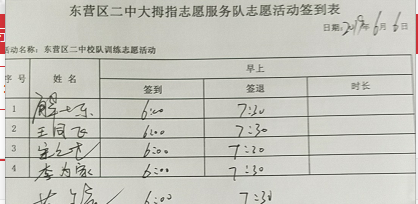 东营区二中大拇指志愿服务队志愿活动签到表
日期：2019年6月6日
活动名称：东营区二中校队训练志愿活动
序号 姓名 早上
签到 签退 时长
1 6:00 7:30
2 王同飞 6:00 7:30
3 6:00 7:20
4 李为家 6:00 7:30
6:00 7:30